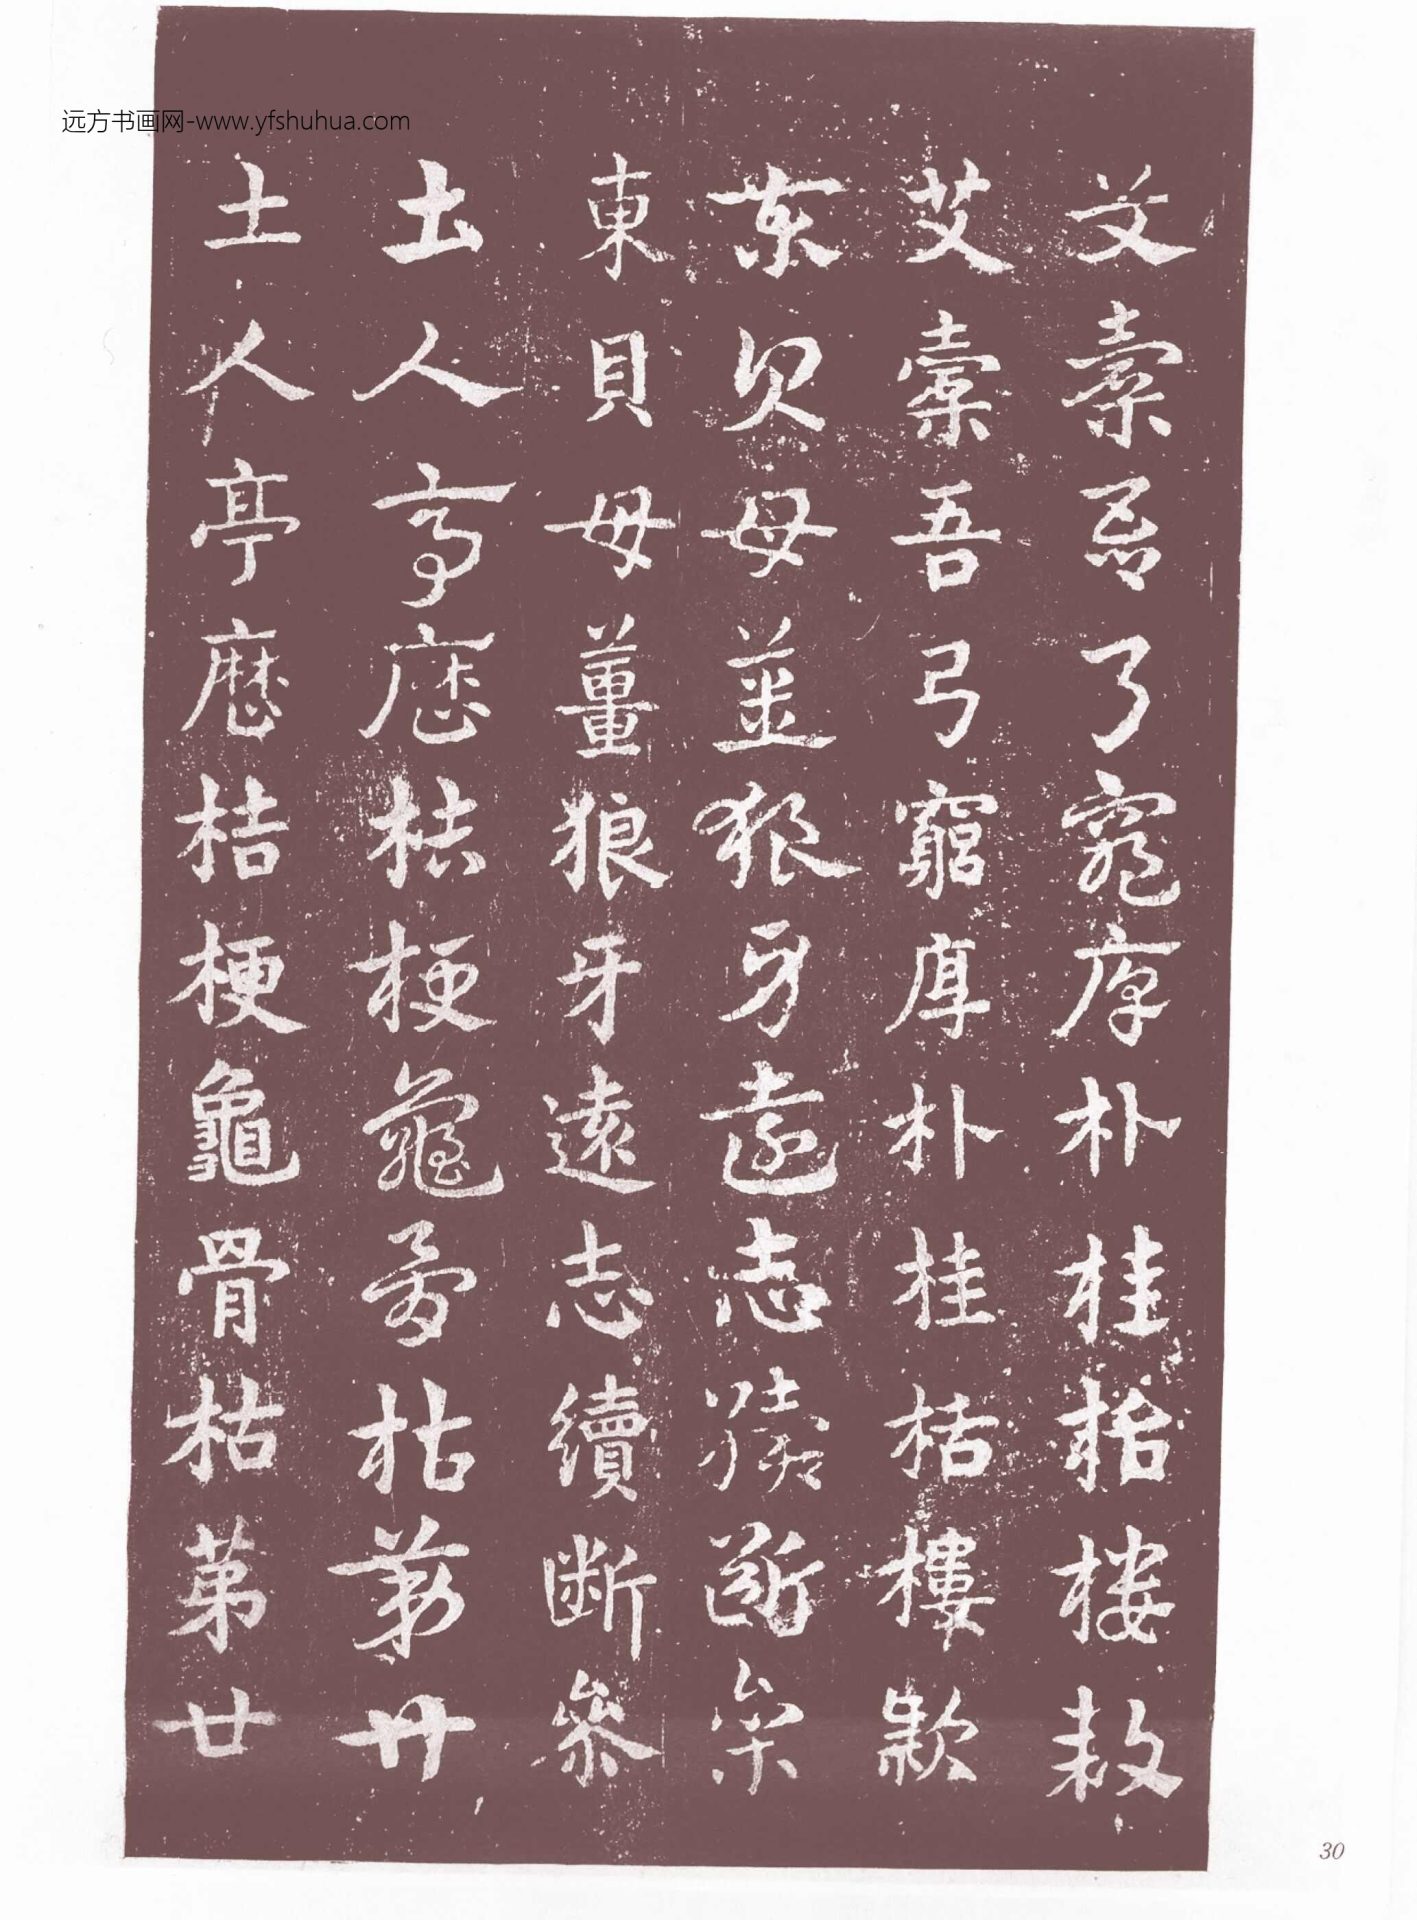 远方书画网-www.yfshuhua.com
艾橐吾弓窮厚朴桂栝樓款
艾橐吾弓窮厚朴桂栝樓款
東貝母薑狼牙遠志續斷參
東貝母薑狼牙遠志續断參
土人亭歷桔梗龜骨枯苐廿
土人亭歷桔梗龜骨枯苐廿
30